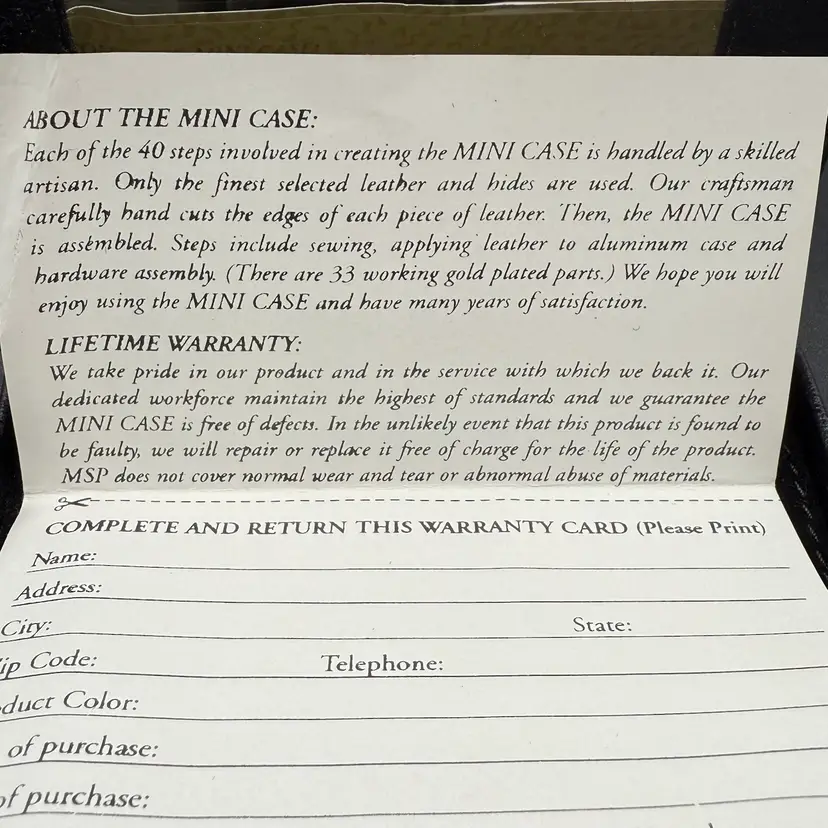 ABOUT THE MINI CASE:
Each of the 40 steps involved in creating the MINI CASE is handled by a skilled
artisan. Only the finest selected leather and hides are used. Our craftsman
carefully hand cuts the edges of each piece of leather. Then, the MINI CASE
is assembled. Steps include sewing, applying leather to aluminum case and
hardware assembly. (There are 33 working gold plated parts.) We hope you will
enjoy using the MINI CASE and have many years of satisfaction.
LIFETIME WARRANTY:
We take pride in our product and in the service with which we back it. Our
dedicated workforce maintain the highest of standards and we guarantee the
MINI CASE is free of defects. In the unlikely event that this product is found to
be faulty, we will repair or replace it free of charge for the life of the product.
MSP does not cover normal wear and tear or abnormal abuse of materials.
COMPLETE AND RETURN THIS WARRANTY CARD (Please Print)
Name:
Address:
City: State:
ip Code: Telephone:
duct Color:
of purchase:
of purchase: